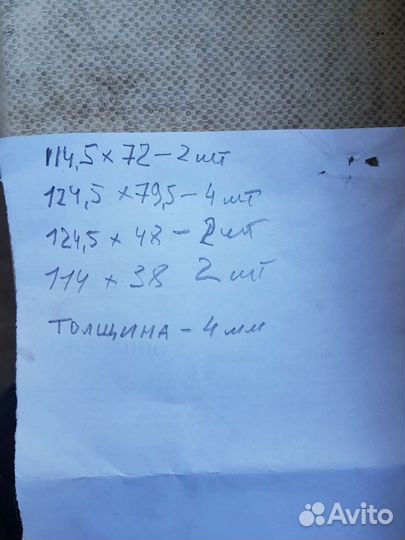 114,5 × 72 – 2 шт
124,5 × 79,5 – 4 шт
124,5 × 48 – 2 шт
114 × 38 2 шт
толщина – 4 мм
Avito